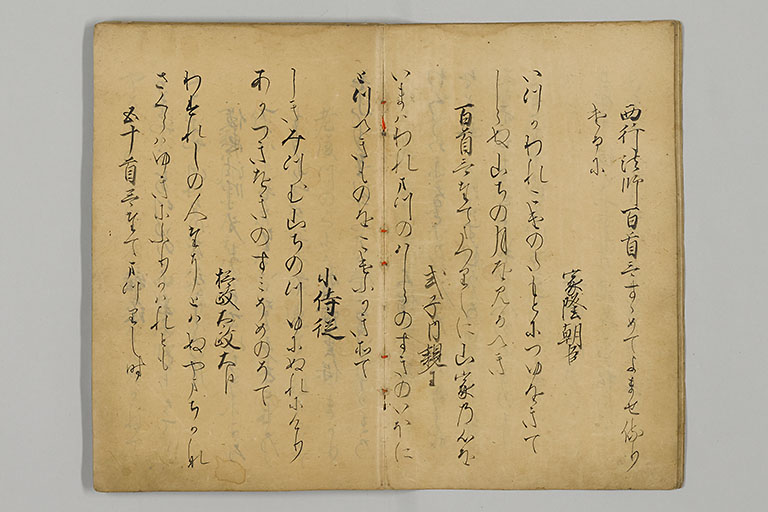 西行法師百首哥すゝめてよませ侍り
けるに
家隆朝臣
いつかわれこけのたもとにつゆをきて
しらぬ山ちの月をみるへき
百首哥たてまつりしに山家乃心を
式子内親王
いまはわれまつのはしらのすきのいほに
とつへきものをこけふかきそて
小侍従
しきみつむ山ちのつゆにぬれにけり
あかつきおきのすみそめのそて
摂政太政大臣
わすれしの人たにとはぬやまちかな
さくらはゆきにふりかはれとも
五十首哥たてまつりし時